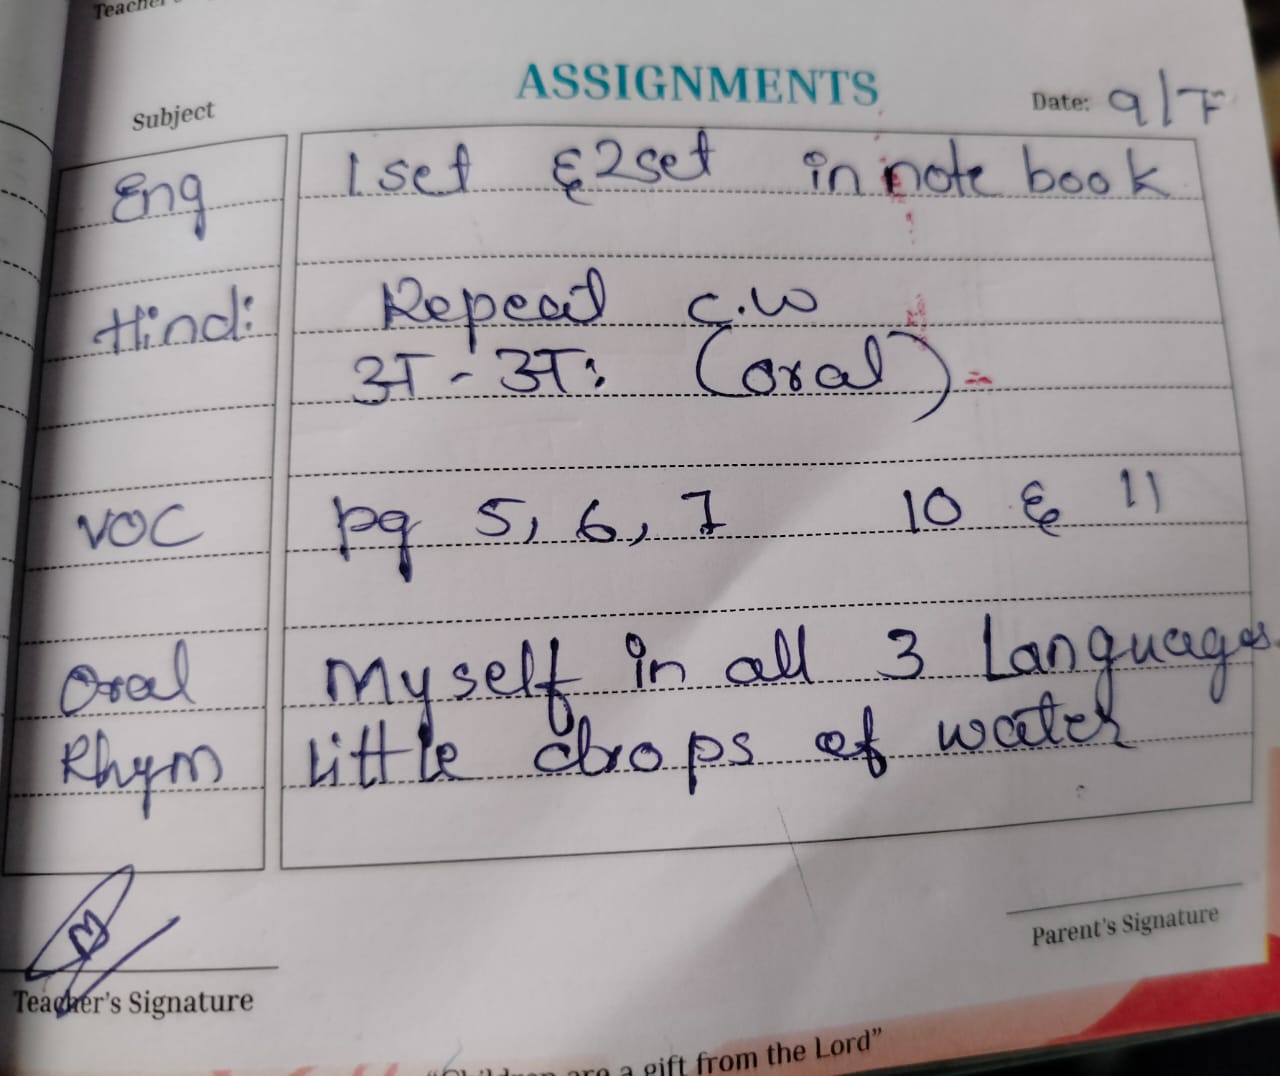 Teacher
ASSIGNMENTS
Subject
Date: 9/7
Eng 1 set & 2 set in note book
Hindi Repeat C.W
अ - अः (oral)
VOC pg 5, 6, 7 10 & 11
Oral Myself in all 3 Languages.
Rhym Little drops of water
Teacher's Signature
Parent's Signature
"Children are a gift from the Lord"